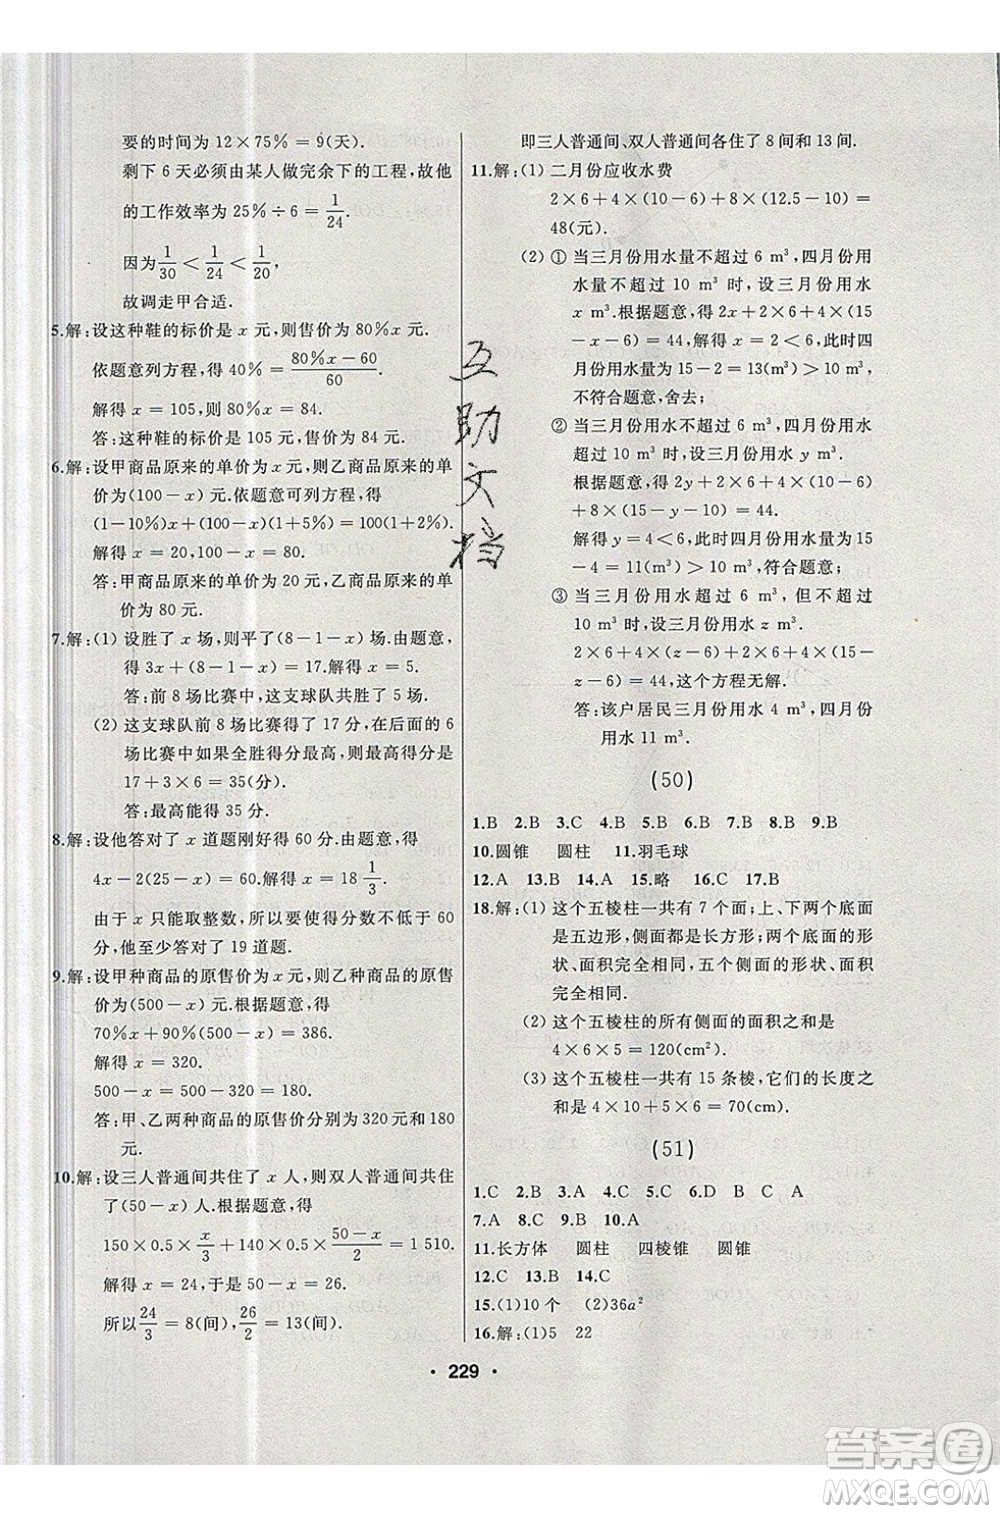 要的时间为 12×75％＝9(天).
剩下 6 天必须由某人做完余下的工程，故他
的工作效率为 25％÷6＝1/24.
因为 1/30＜1/24＜1/20，
故调走甲合适.
5.解：设这种鞋的标价是 x 元，则售价为 80％x 元.
依题意列方程，得 40％＝(80％x－60)/60.
解得 x＝105，则 80％x＝84.
答：这种鞋的标价是 105 元，售价为 84 元.
6.解：设甲商品原来的单价为 x 元，则乙商品原来的单
价为(100－x)元.依题意可列方程，得
(1－10％)x＋(100－x)(1＋5％)＝100(1＋2％).
解得 x＝20，100－x＝80.
答：甲商品原来的单价为 20 元，乙商品原来的单
价为 80 元.
7.解：(1) 设胜了 x 场，则平了(8－1－x)场.由题意，
得 3x＋(8－1－x)＝17.解得 x＝5.
答：前 8 场比赛中，这支球队共胜了 5 场.
(2) 这支球队前 8 场比赛得了 17 分，在后面的 6
场比赛中如果全胜得分最高，最高分是
17＋3×6＝35(分).
答：最高能得 35 分.
8.解：设他答对了 x 道题刚好得 60 分.由题意，得
4x－2(25－x)＝60.解得 x＝18 1/3.
由于 x 只能取整数，所以要使得分数不低于 60
分，他至少答对了 19 道题.
9.解：设甲种商品的原售价为 x 元，则乙种商品的原售
价为(500－x)元.根据题意，得
70％x＋90％(500－x)＝386.
解得 x＝320.
500－x＝500－320＝180.
答：甲、乙两种商品的原售价分别为 320 元和 180
元.
10.解：设三人普通间共住了 x 人，则双人普通间共住
了(50－x)人.根据题意，得
150×0.5×x/3＋140×0.5×(50－x)/2＝1 510.
解得 x＝24，于是 50－x＝26.
所以 24/3＝8(间)，26/2＝13(间).
即三人普通间、双人普通间各住了 8 间和 13 间.
11.解：(1) 二月份应收水费
2×6＋4×(10－6)＋8×(12.5－10)＝
48(元).
(2) ① 当三月份用水量不超过 6 m³，四月份用
水量不超过 10 m³ 时，设三月份用水
x m³.根据题意，得 2x＋2×6＋4×(15
－x－6)＝44，解得 x＝2＜6，而此时四
月份用水量 15－2＝13(m³)＞10(m³)，
不符合题意，舍去；
② 当三月份用水不超过 6 m³，四月份用水
超过 10 m³ 时，设三月份用水 y m³.
根据题意，得 2y＋2×6＋4×(10－6)
＋8×(15－y－10)＝44.
解得 y＝4＜6，此时四月份用水量为 15
－4＝11(m³)，符合题意；
③ 当三月份用水超过 6 m³，但不超过
10 m³时，设三月份用水 z m³.
2×6＋4×(z－6)＋2×6＋4×(15
－z－6)＝44，这个方程无解.
答：该户居民三月份用水 4 m³，四月份
用水 11 m³.
(50)
1.B 2.B 3.C 4.B 5.B 6.B 7.B 8.B 9.B
10.圆锥 圆柱 11.羽毛球
12.A 13.B 14.A 15.略 16.C 17.B
18.解：(1) 这个五棱柱一共有 7 个面；上、下两个底面
是五边形，侧面都是长方形；两个底面的形
状、面积完全相同，五个侧面的形状、面积
完全相同.
(2) 这个五棱柱的所有侧面的面积之和是
4×6×5＝120(cm²).
(3) 这个五棱柱一共有 15 条棱，它们的长度之
和是 4×10＋5×6＝70(cm).
(51)
1.C 2.B 3.A 4.C 5.C 6.D B C A
7.A 8.C 9.B 10.A
11.长方体 圆柱 四棱锥 圆锥
12.C 13.B 14.C
15.(1)10 个 (2)36a²
16.解：(1)5 22
· 229 ·
互助文档
答案圈
MXQE.COM